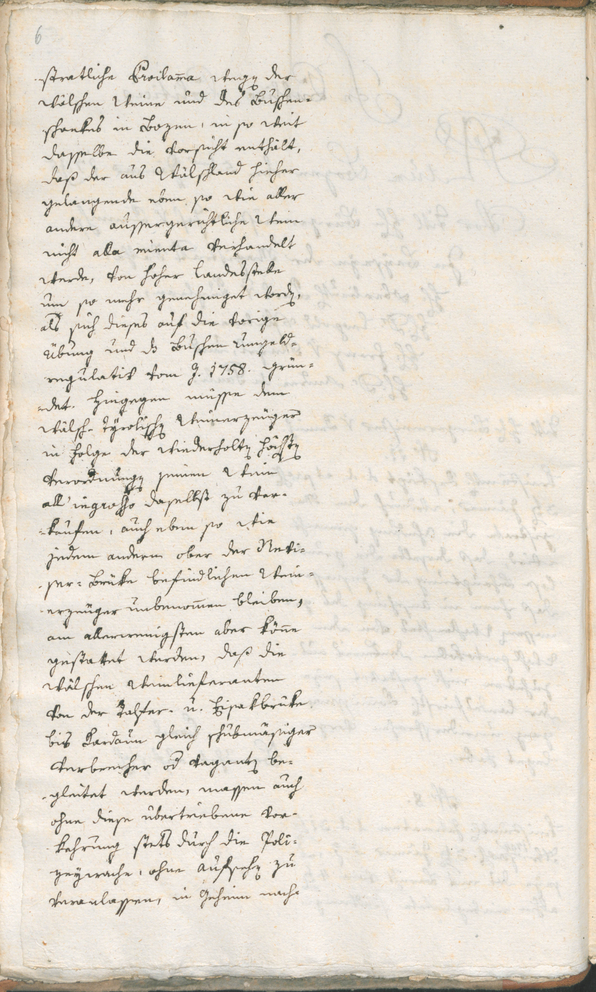 6
stratliche Proclama wegen der
wälschen Weine und des Buschen-
schankes in Bozen, in so weit
dasselbe die Vorsicht enthält,
daß der aus Wälschland hieher
gelangende eben so wie aller
andere aussergerichtliche Wein
nicht alla minuta verhandelt
werde, von hoher Landesstelle
um so mehr genehmiget worden,
als sich dieses auf die vorige
Übung und die Buschen Umgeld-
regulativ vom J. 1758. grün-
det. Hingegen müsse dem
wälsch-Tyrolischen Weinerzeuger
in Folge der wiederholten höchsten
Verordnungen seinen Wein
all' ingrosso daselbst zu ver-
kaufen, auch eben so wie
jedem andern ober der Nevi-
ser-Brüke befindlichen Wein-
erzeuger unbenommen bleiben,
am allerwenigsten aber könne
gestattet werden, daß die
wälschen Weinlieferanten
von der Talfer- u. Eisakbrüke
bis Kardaun gleich schubmäsiger
Verbrecher od Vaganten be-
gleitet werden, massen auch
ohne diese übertriebene Vor-
kehrung stets durch die Poli-
zeywache, ohne Aufsehen zu
veranlassen, in Geheim nach-